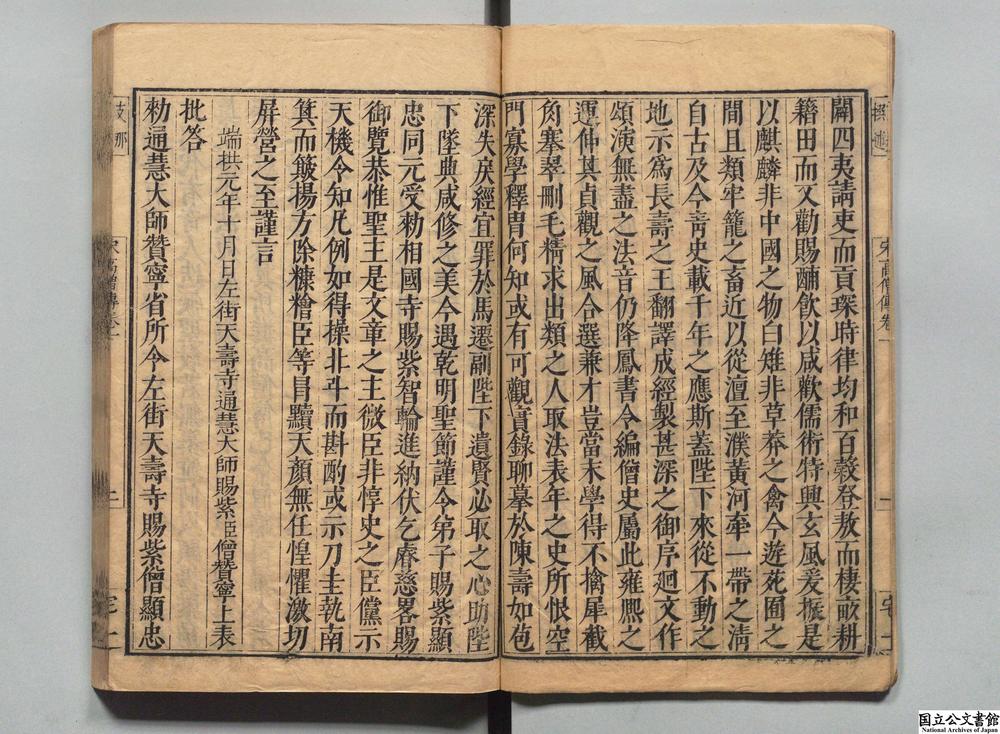 闢四夷請吏而貢琛時律均和百穀登敖而棲畝耕
籍田而又勸賜酺飲以咸歡儒術特興玄風爰振是
以麒麟非中國之物白雉非草莽之禽今遊苑囿之
間且類牢籠之畜近以從澶至濮黃河牽一帶之清
自古及今青史載千年之應斯蓋陛下來從不動之
地示爲長壽之王翻譯成經製甚深之御序廻文作
頌演無盡之法音仍降鳳書令編僧史屬此雍熙之
運仲其貞觀之風合選兼才豈當末學得不擒犀截
角搴翠刪毛精求出類之人取法表年之史所恨空
門寡學釋胄何知或有可觀實錄聊摹於陳壽如苞
深失戾經宜罪於馬遷副陛下遺賢必取之心助陛
下墜典咸修之美今遇乾明聖節謹令弟子賜紫顯
忠同元受勑相國寺賜紫智輪進納伏乞睿慈略賜
御覽恭惟聖主是文章之主微臣非惇史之臣儻示
天機令知凡例如得操北斗而斟酌或示刀圭執南
箕而簸揚方除糠䊪臣等冐黷天顏無任惶懼激切
屏營之至謹言
端拱元年十月日左街天壽寺通慧大師賜紫臣僧贊寧上表
批答
勑通慧大師贊寧省所令左街天壽寺賜紫僧顯忠
宋高僧傳卷一
一
宋高僧傳卷一
二
国立公文書館
National Archives of Japan